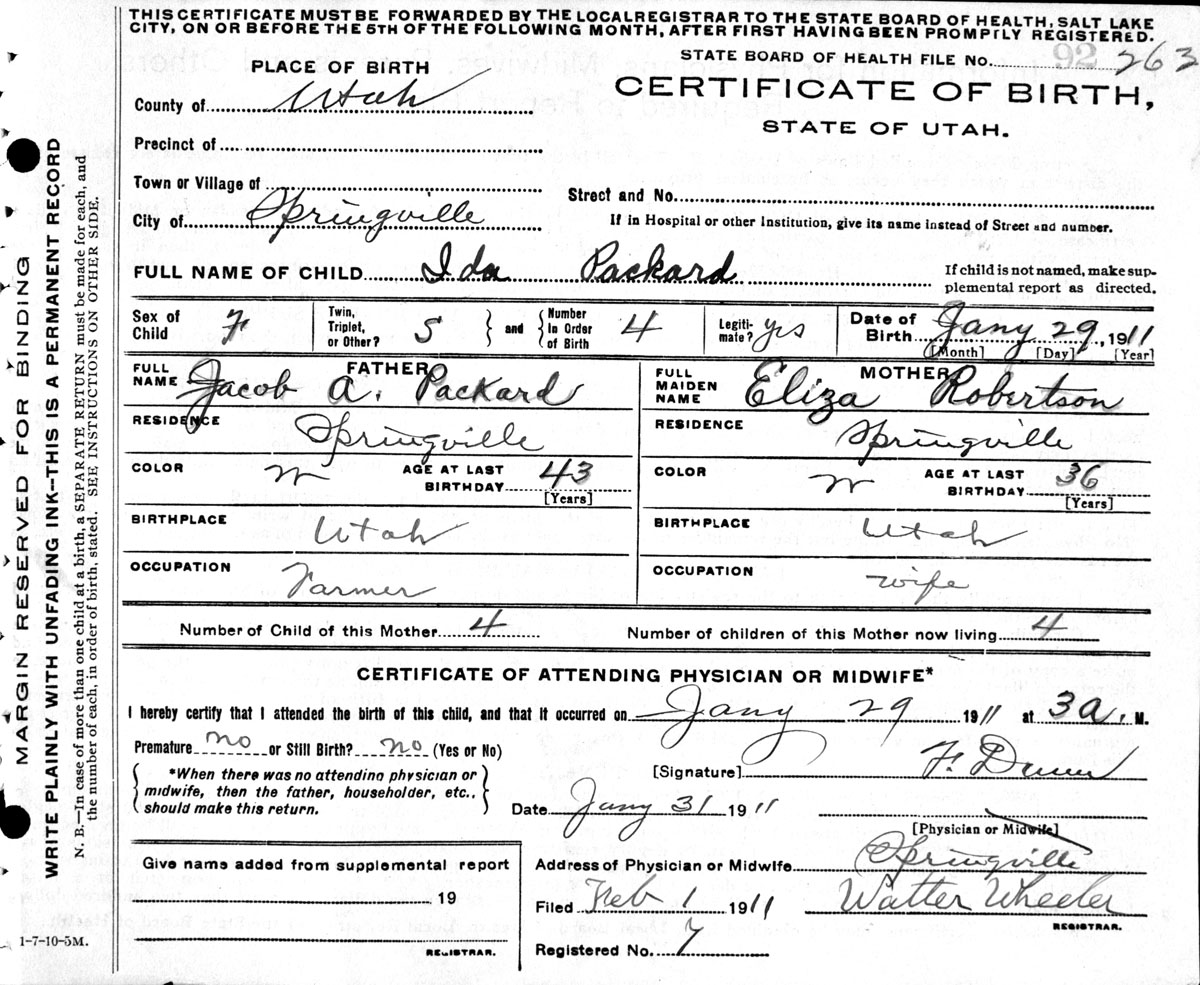 THIS CERTIFICATE MUST BE FORWARDED BY THE LOCAL REGISTRAR TO THE STATE BOARD OF HEALTH, SALT LAKE
CITY, ON OR BEFORE THE 5TH OF THE FOLLOWING MONTH, AFTER FIRST HAVING BEEN PROMPTLY REGISTERED.
STATE BOARD OF HEALTH FILE NO. 92 263
PLACE OF BIRTH
CERTIFICATE OF BIRTH,
STATE OF UTAH.
County of Utah
Precinct of
Town or Village of
Street and No.
City of Springville
If in Hospital or other Institution, give its name instead of Street and number.
FULL NAME OF CHILD Ida Packard
If child is not named, make sup-
plemental report as directed.
Sex of Child F
Twin, Triplet, or Other? S
and
Number In Order of Birth 4
Legiti-mate? yes
Date of Birth Jany 29, 1911
[Month] [Day] [Year]
FATHER
FULL NAME Jacob A. Packard
RESIDENCE Springville
COLOR W
AGE AT LAST BIRTHDAY 43
[Years]
BIRTHPLACE Utah
OCCUPATION Farmer
MOTHER
FULL MAIDEN NAME Eliza Robertson
RESIDENCE Springville
COLOR W
AGE AT LAST BIRTHDAY 36
[Years]
BIRTHPLACE Utah
OCCUPATION wife
Number of Child of this Mother 4
Number of children of this Mother now living 4
CERTIFICATE OF ATTENDING PHYSICIAN OR MIDWIFE*
I hereby certify that I attended the birth of this child, and that it occurred on Jany 29 1911 at 3 a. M.
Premature no or Still Birth? no (Yes or No)
[Signature] F. Dunn
*When there was no attending physician or
midwife, then the father, householder, etc.,
should make this return.
Date Jany 31 1911
[Physician or Midwife]
Give name added from supplemental report
19
REGISTRAR.
Address of Physician or Midwife Springville
Filed Feb 1 1911 Walter Wheeler
REGISTRAR.
Registered No. 7
1-7-10-5M.
MARGIN RESERVED FOR BINDING
WRITE PLAINLY WITH UNFADING INK--THIS IS A PERMANENT RECORD
N. B.--In case of more than one child at a birth, a SEPARATE RETURN must be made for each, and
the number of each, in order of birth, stated. SEE INSTRUCTIONS ON OTHER SIDE.